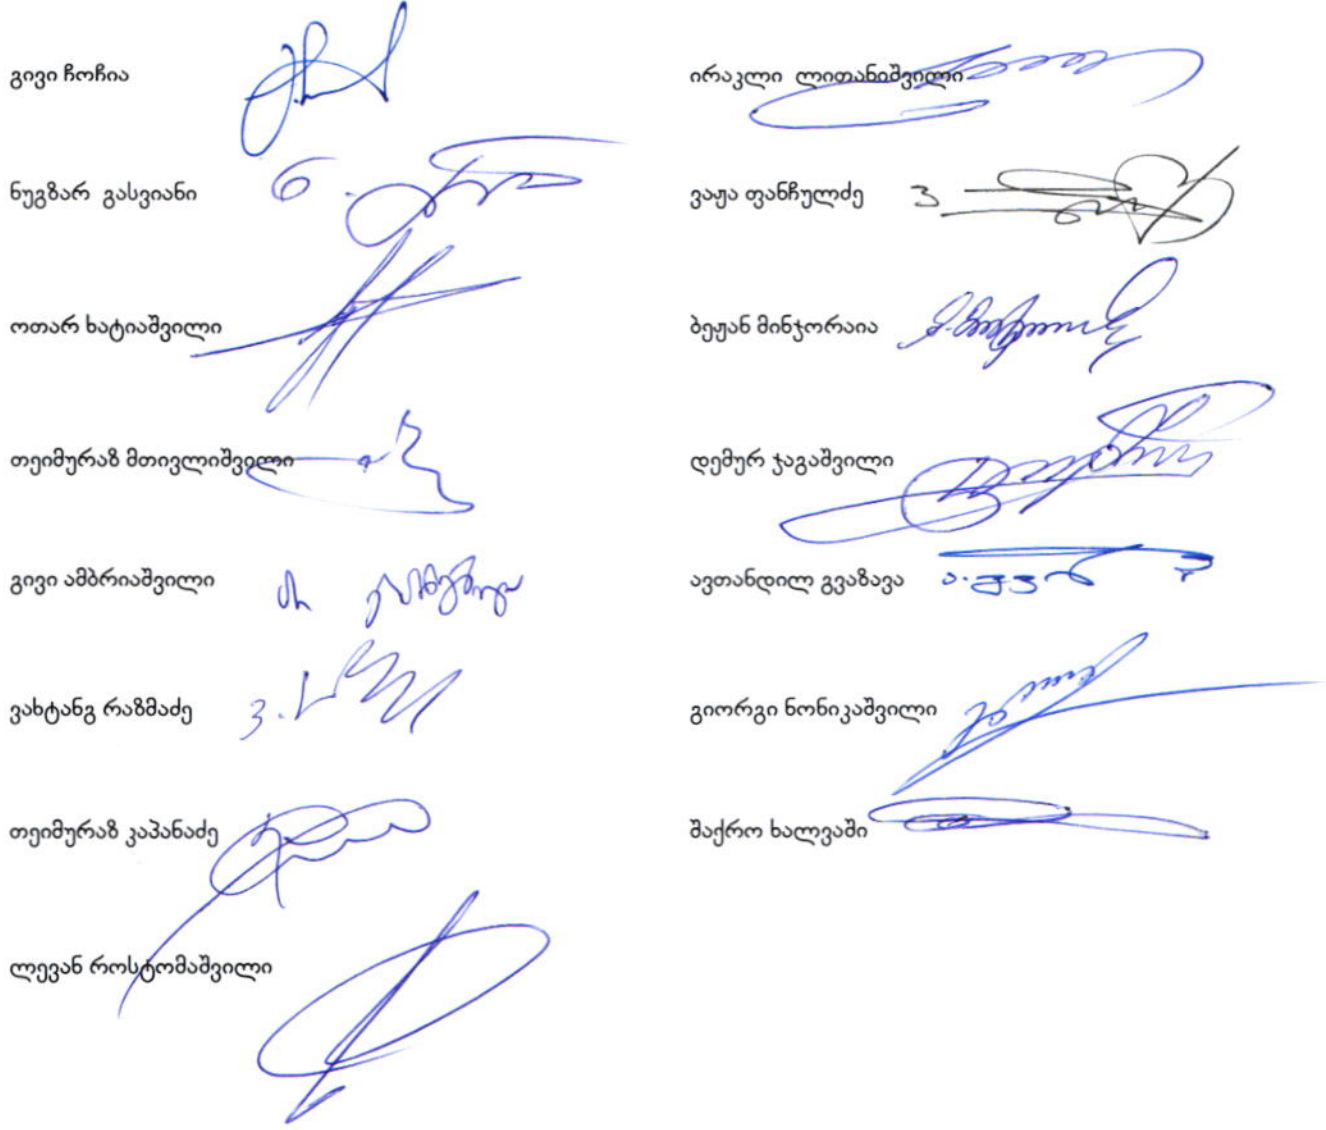 გივი ჩოჩია
ნუგზარ გასვიანი
ოთარ ხატიაშვილი
თეიმურაზ მთივლიშვილი
გივი ამბრიაშვილი
ვახტანგ რაზმაძე
თეიმურაზ კაპანაძე
ლევან როსტომაშვილი
ირაკლი ლითანიშვილი
ვაჟა ფანჩულძე
ბეჟან მინჯორაია
დემურ ჯაგაშვილი
ავთანდილ გვაზავა
გიორგი ნონიკაშვილი
შაქრო ხალვაში